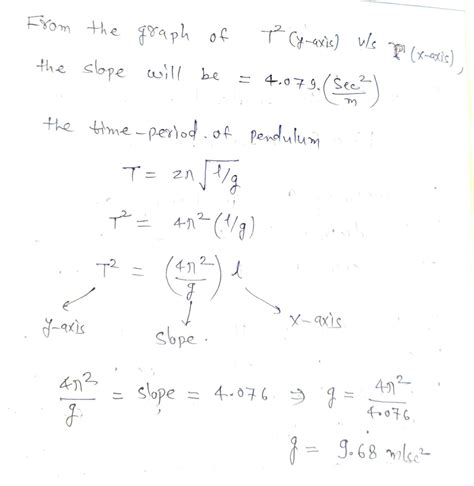 From the graph of T² (y-axis) v/s (x-axis),
the slope will be = 4.079. (Sec²/m)
the time-period of pendulum
T = 2π √l/g
T² = 4π² (l/g)
T² = (4π²/g) l
y-axis slope. x-axis
4π²/g = slope = 4.076 ⇒ g = 4π²/4.076
g = 9.68 m/sec²